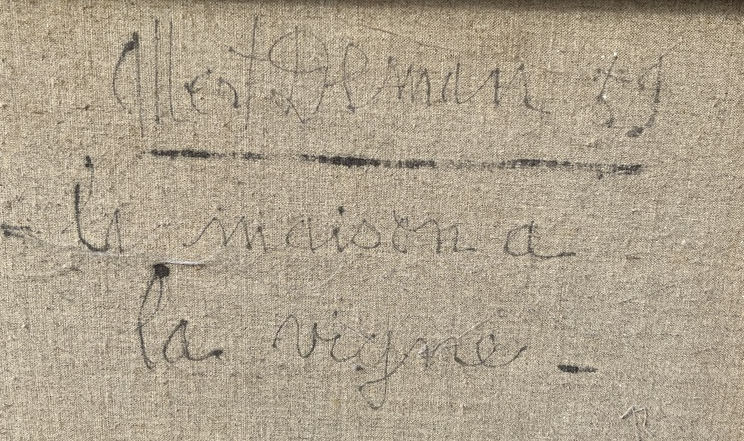 Albert Deman 59
la maison a
la vigne